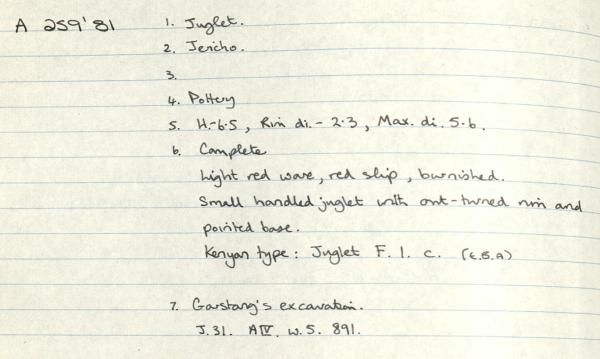 A 259'81 1. Juglet.
2. Jericho.
3.
4. Pottery
5. H.-6.5, Rim di.- 2.3, Max. di. 5.6.
6. Complete
Light red ware, red slip, burnished.
Small handled juglet with out-turned rim and
pointed base.
Kenyan type: Juglet F. 1. c. (E.B.A)
7. Garstang's excavation.
J.31. A IV. W.5. 891.